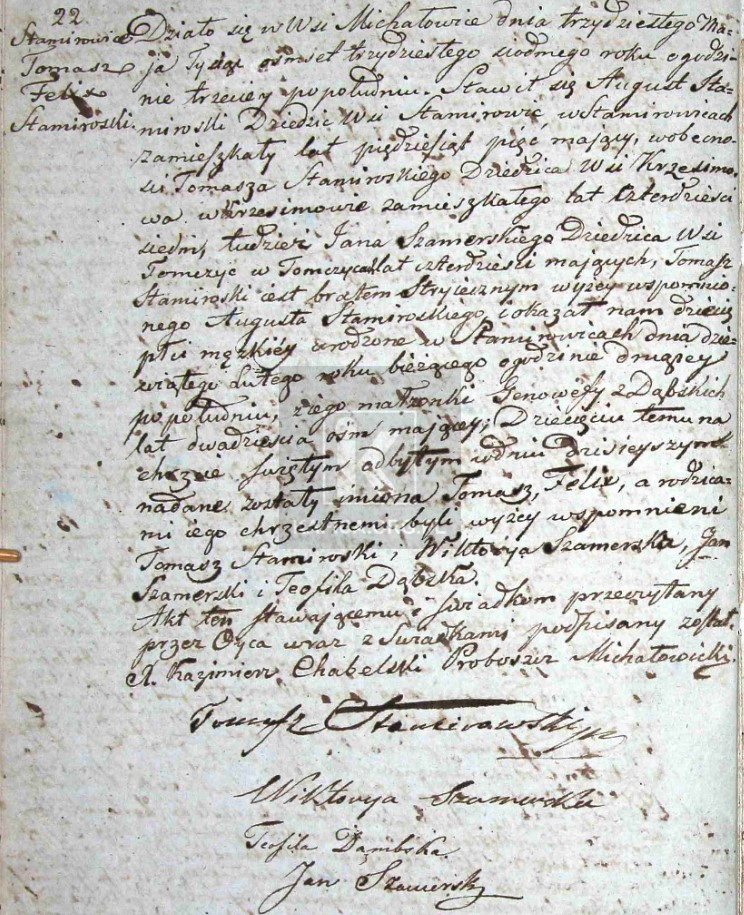 22
Stamirowice
Tomasz
Felix
Stamiroski.
Działo się w Wsi Michałowice dnia trzydziestego Ma-
ja Tysiąc ośmset trzydziestego siodmego roku o godzi-
nie trzeciey popołudniu. Stawił się August Sta-
miroski Dziedzic Wsi Stamirowic, w Stamirowicach
zamieszkały lat piędziesiąt pięć mający, wobecno-
ści Tomasza Stamirowskiego Dziedzica Wsi Krzesimo-
wa w Krzesimowie zamieszkałego lat czterdzieści
siedm, tudzież Jana Szamerskiego Dziedzica Wsi
Tomczyc w Tomczycach lat czterdzieści mających, Tomasz
Stamiroski iest bratem Stryiecznym wyżey wspomnio-
nego Augusta Stamiroskiego, i okazał nam dziecię
płci męzkiéy urodzone w Stamirowicach dnia dzie-
wiątego Lutego roku bieżącego o godzinie drugiey
popołudniu, z iego małżonki Genowefy z Dąbskich
lat dwadzieścia ośm maiącey; Dziecięciu temu na
chrzcie świętym odbytym w dniu dzisieyszym
nadane zostały imiona Tomasz, Felix, a rodzica-
mi iego chrzestnemi byli wyżey wspomnieni
Tomasz Stamiroski, Wiktorya Szamerska, Jan
Szamerski i Teofila Dąbska.
Akt ten stawającemu i świadkom przeczytany
przez Oyca wraz z Swiadkami podpisany został.
X. Kazimierz Chabelski Proboszcz Michałowicki.
Tomasz Stamirowski
Wiktorya Szamerska
Teofila Dąmbska.
Jan Szamerski